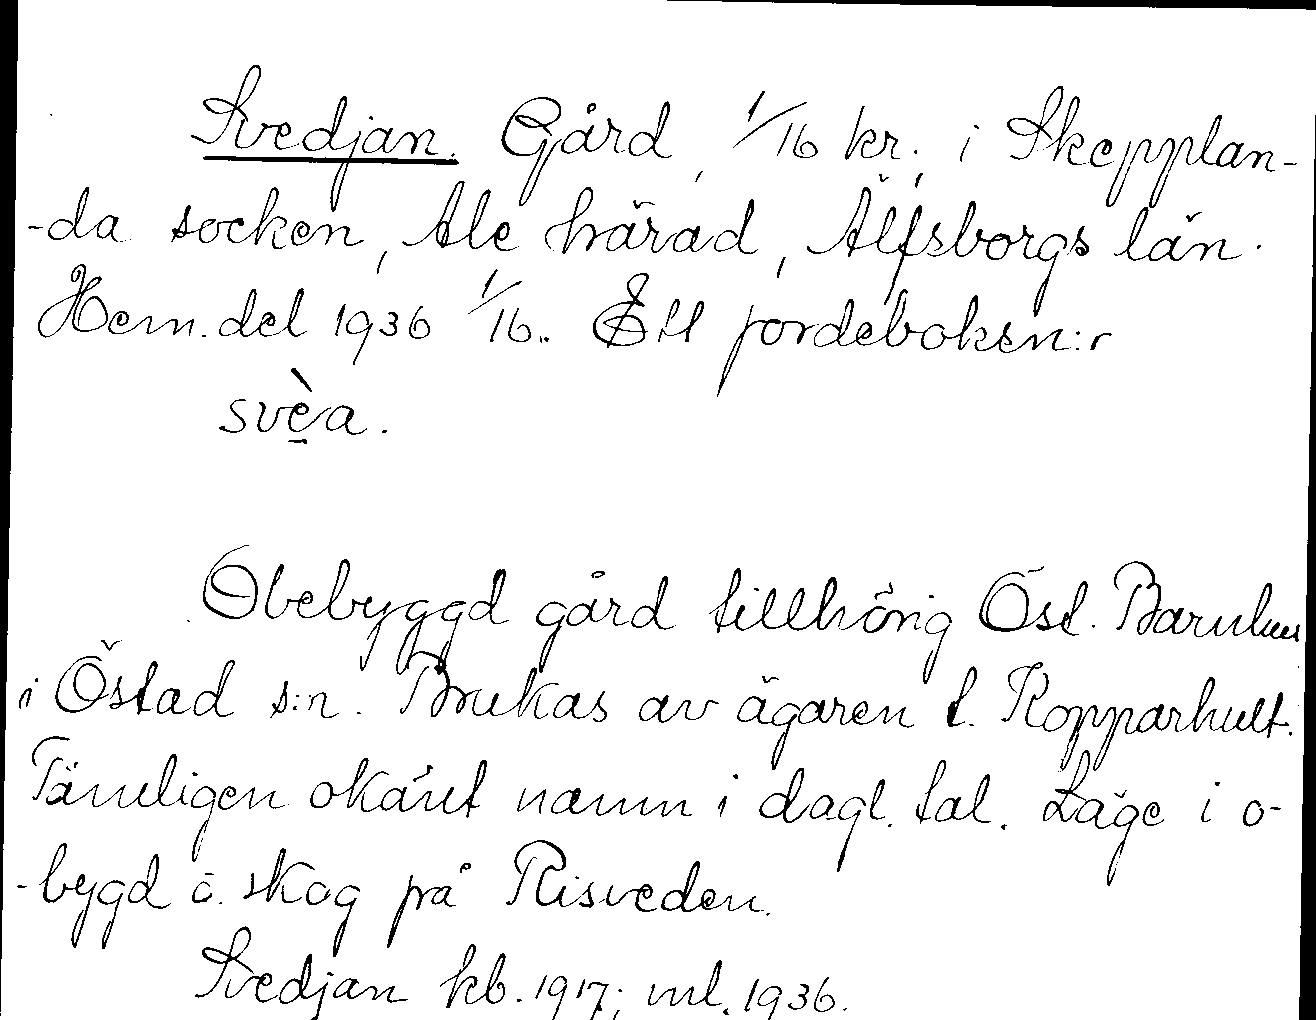 Svedjan. Gård, 1/16 kr., i Skepplan-
-da socken, Ale härad, Älfsborgs län.
Hem.del 1936 1/16.. Ett jordeboksn:r
svèa.
Obebyggd gård tillhörig Öst. Barnhus
i Östad s:n. Brukas av ägaren t. Kopparhult.
Tämligen okänt namn i dagl. tal. Läge i o-
-bygd o. skog på Risveden.
Svedjan kb. 1917; ml. 1936.